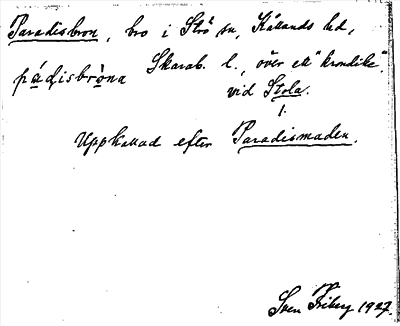 Paradisbron, bro i Strö sn, Kållands hd,
pádisbròna Skarab. l., över ett "krondike"
vid Stola.
1.
Uppkallad efter Paradismaden.
Sven Friberg 1927.